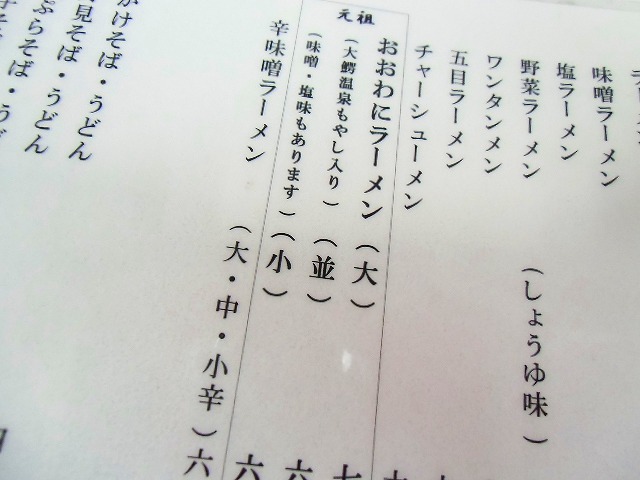 味噌ラーメン
塩ラーメン
野菜ラーメン (しょうゆ味)
ワンタンメン
五目ラーメン
チャーシューメン
元祖
おおわにラーメン (大) 七
(大鰐温泉もやし入り) (並) 六
(味噌・塩味もあります) (小) 六
辛味噌ラーメン (大・中・小辛) 六
かけそば・うどん
月見そば・うどん
ぷらそば・うど